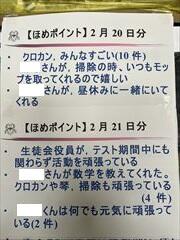 【ほめポイント】2月20日分
・ クロカン、みんなすごい(10件)
・ さんが、掃除の時、いつもモッ
プを取ってくれるので嬉しい
・ さんが、昼休みに一緒にいて
くれる
【ほめポイント】2月21日分
・ 生徒会役員が、テスト期間中にも
関わらず活動を頑張っている
・ さんが数学を教えてくれた。
クロカンや琴、掃除も頑張っている
(4件)
・ くんは何でも元気に頑張って
いる(2件)